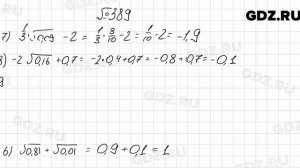 GDZ.RU
№ 389
7) 1/3 · √0,09 - 2 = 1/3 · 3/10 - 2 = 1/10 - 2 = -1,9
8) -2 √0,16 + 0,7 = -2 · 0,4 + 0,7 = -0,8 + 0,7 = -0,1
6) √0,81 + √0,01 = 0,9 + 0,1 = 1